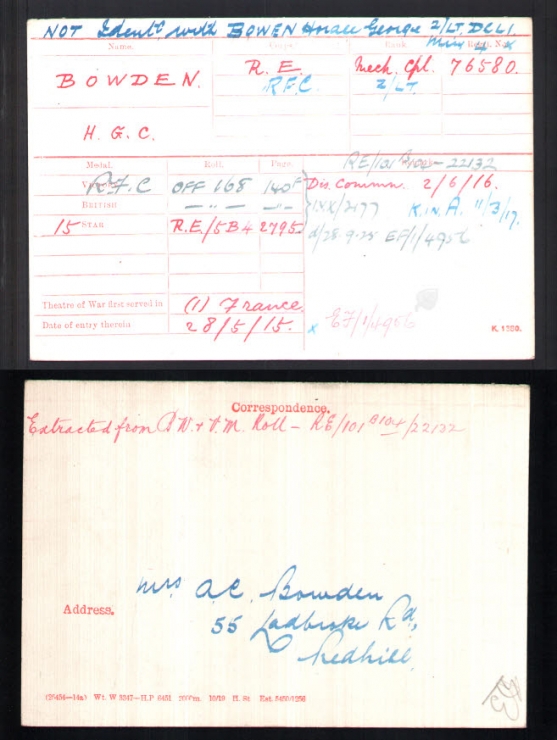 NOT Identl with BOWEN Horace George 2/LT. DCLI.
Name. Corps. Rank Regtl. No.
BOWDEN. R.E. Mech. Cpl. 76580.
R.F.C. 2/LT.
H. G. C.
RE/101 22132
Medal. Roll. Page.
Victory R.F.C OFF 168 140F Dis. Commn. 2/6/16.
British - " - - " - 1XX/2177 K. in A. 11/3/17.
15 Star R.E./5B4 2795 d/28.9.25 EF/1/4956
Theatre of War first served in (1) France.
Date of entry therein 28/5/15. x EF/1/4956 K. 1380.
Correspondence.
Extracted from B.W. & V.M. Roll - RE/101 B104/22132
Mrs A.C. Bowden
Address. 55 Ladbroke Rd,
Redhill.
(26454—14a) Wt. W 3347—H.P 6451 10/19 H. St